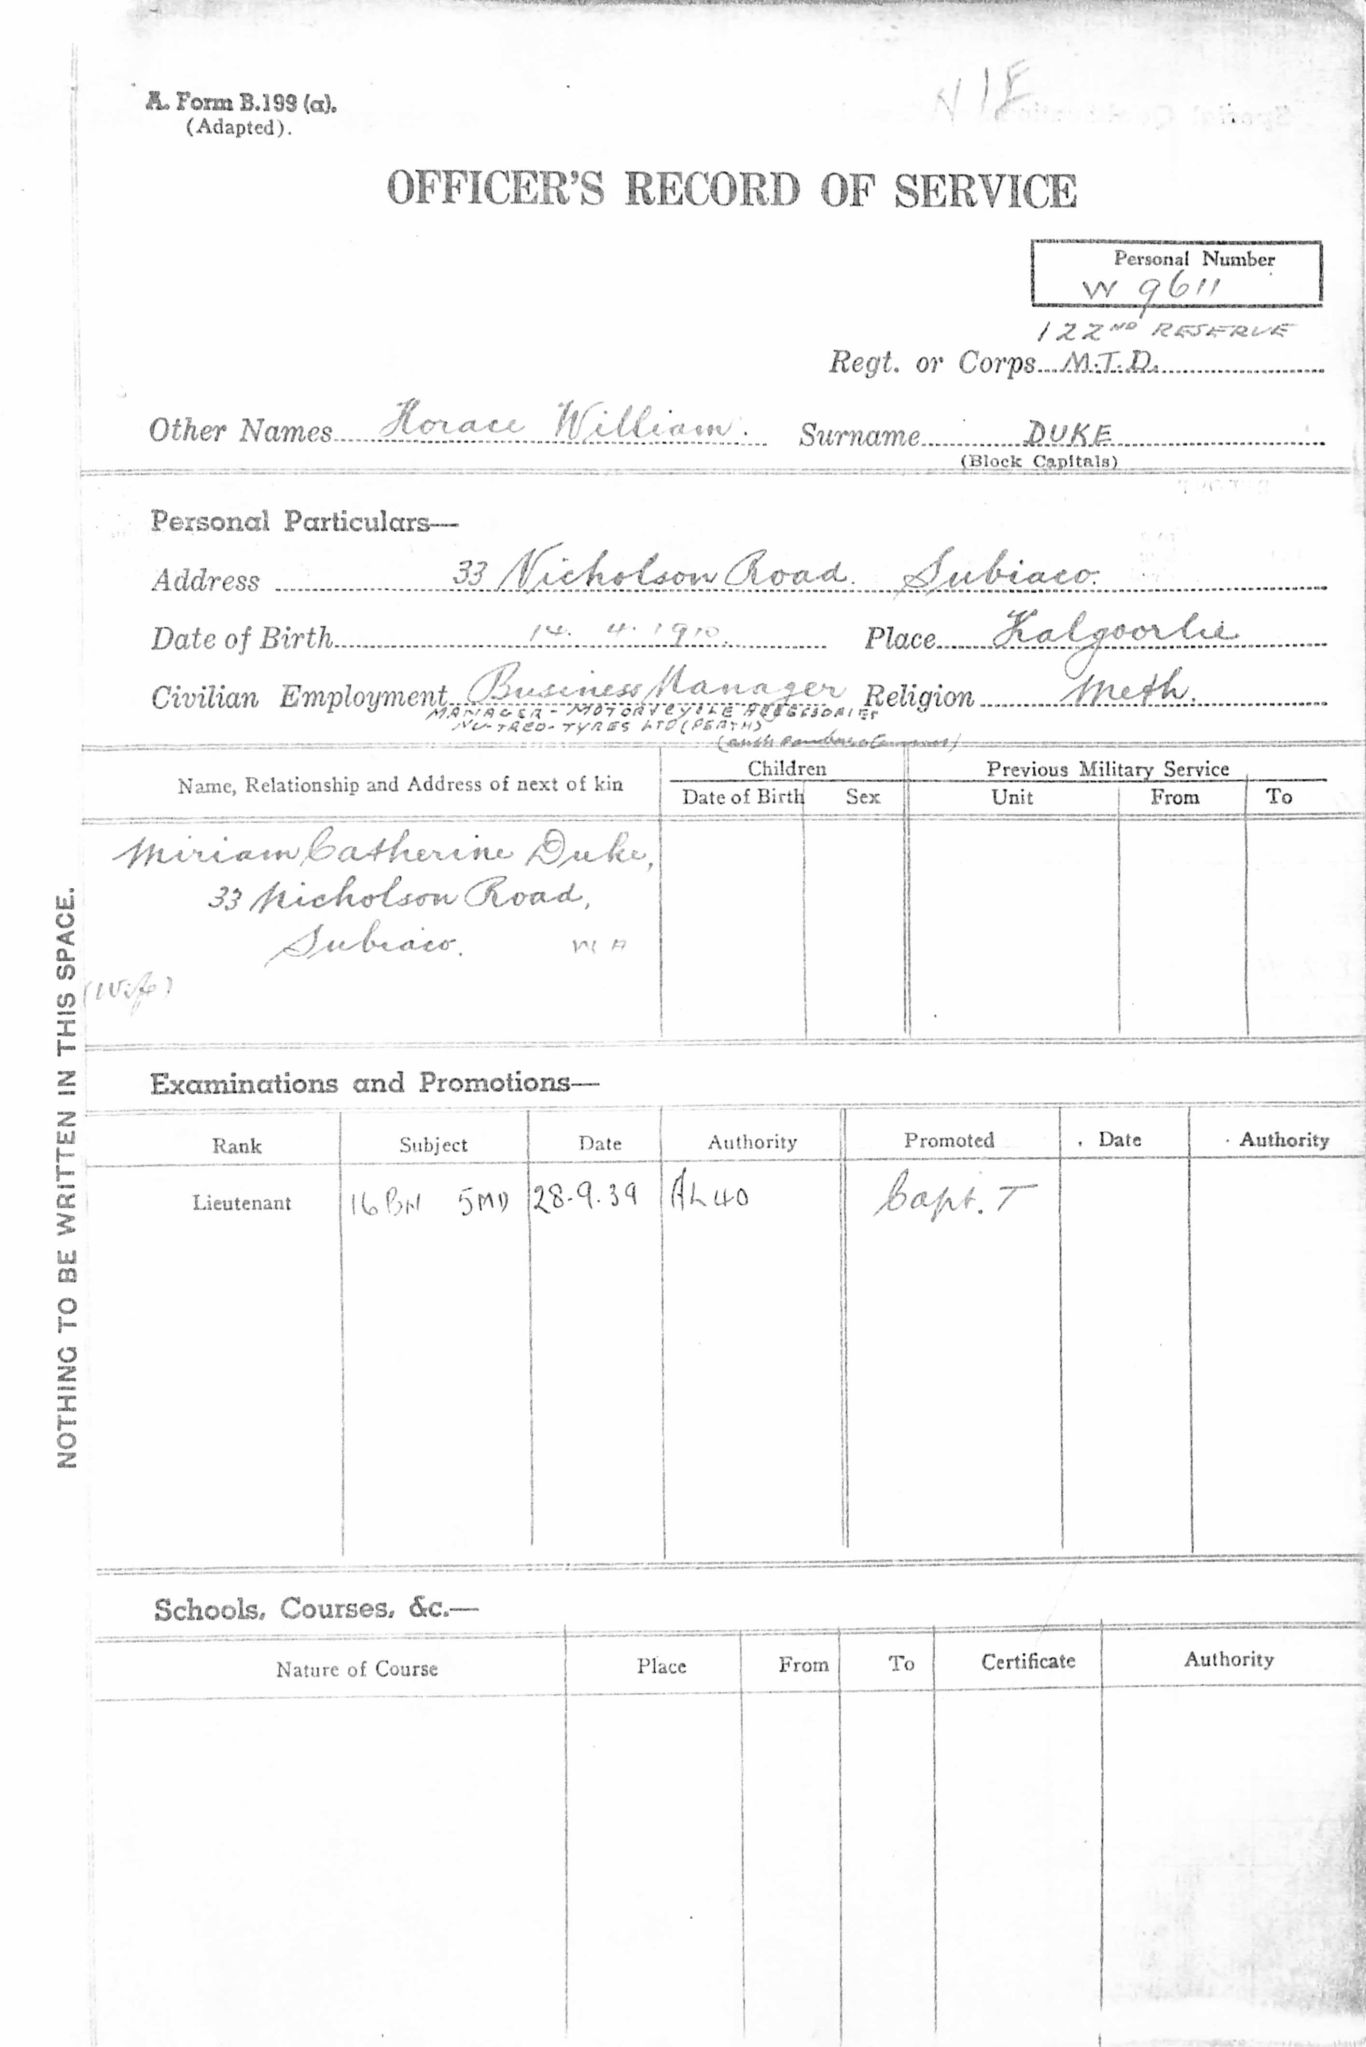 A. Form B.199 (a).
(Adapted).
OFFICER'S RECORD OF SERVICE
Personal Number
W 9611
122ND RESERVE
Regt. or Corps M.T.D.
Other Names Horace William. Surname DUKE
(Block Capitals)
Personal Particulars—
Address 33 Nicholson Road. Subiaco.
Date of Birth 14. 4. 1910. Place Kalgoorlie
Civilian Employment Business Manager Religion Meth.
MANAGER - MOTORCYCLE ACCESSORIES
NU-TRED-TYRES LTD (PERTH)
Name, Relationship and Address of next of kin Children Previous Military Service
Date of Birth Sex Unit From To
Miriam Catherine Duke,
33 Nicholson Road,
Subiaco. W A
(Wife)
NOTHING TO BE WRITTEN IN THIS SPACE.
Examinations and Promotions—
Rank Subject Date Authority Promoted Date Authority
Lieutenant 16 BN 5 MD 28.9.39 AL 40 Capt. T
Schools, Courses, &c.—
Nature of Course Place From To Certificate Authority